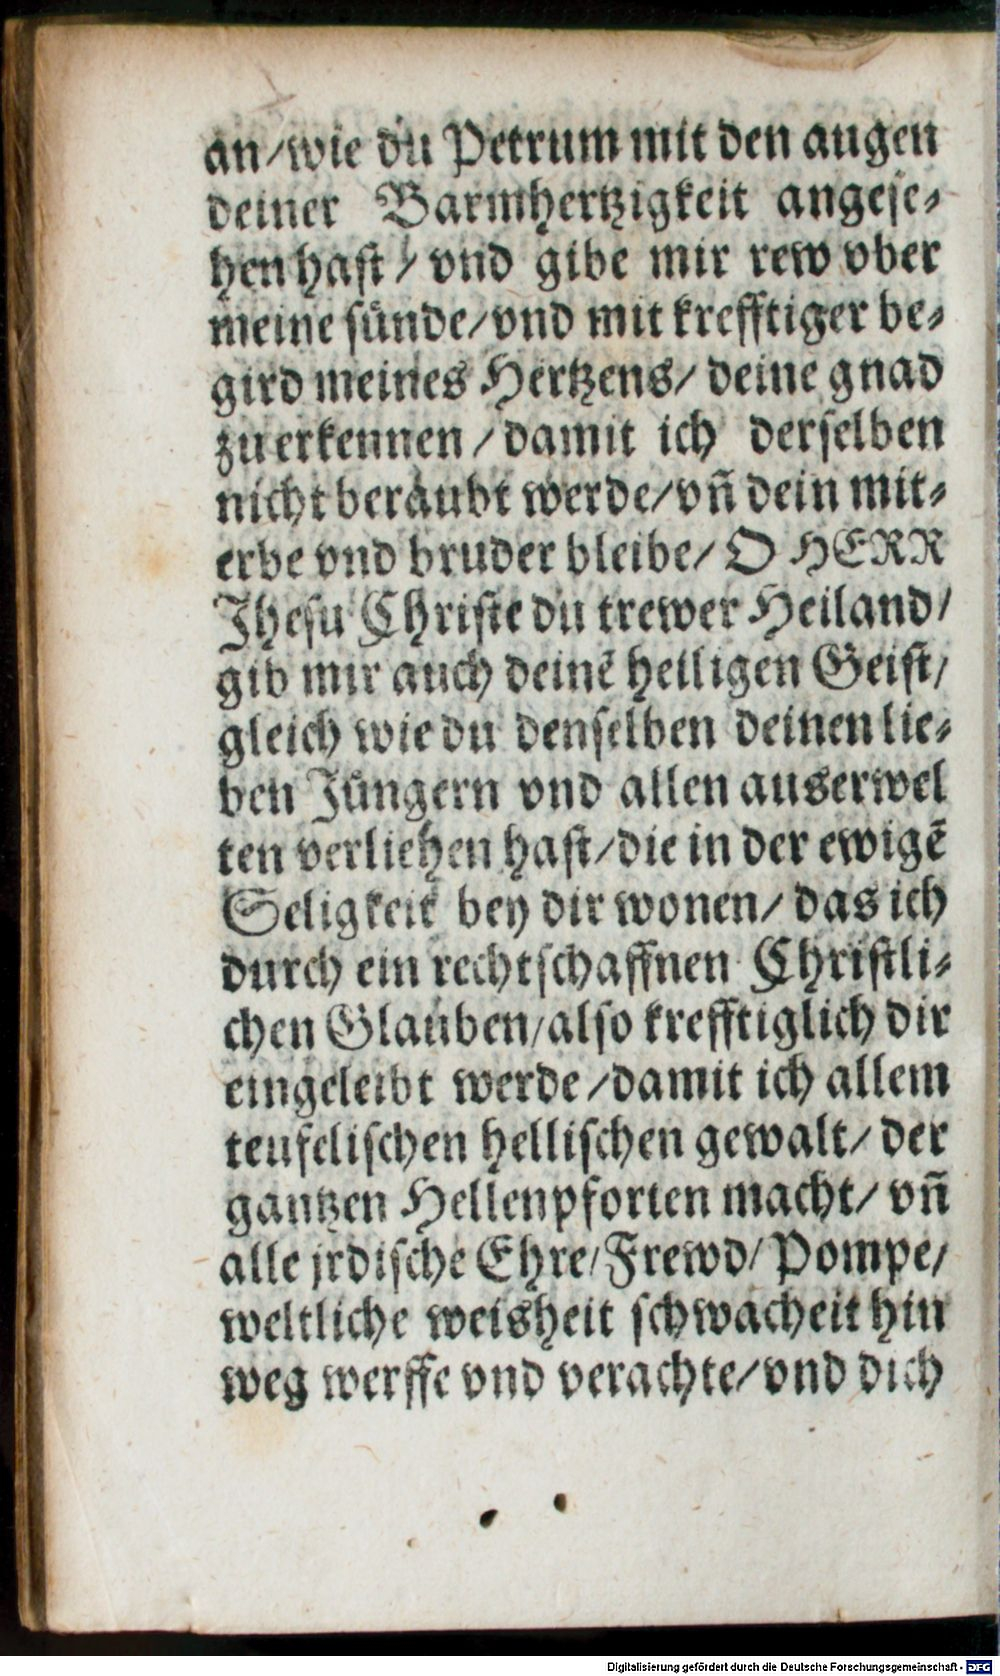 an/wie du Petrum mit den augen
deiner Barmhertzigkeit angese⸗
hen hast/ vnd gibe mir rew vber
meine sünde/vnd mit krefftiger be⸗
gird meines Hertzens/ deine gnad
zu erkennen/damit ich derselben
nicht beraubt werde/vñ dein mit⸗
erbe vnd bruder bleibe/ O HERR
Jhesu Christe du trewer Heiland/
gib mir auch deinē heiligen Geist/
gleich wie du denselben deinen lie⸗
ben Jüngern vnd allen auserwel
ten verliehen hast/die in der ewigē
Seligkeit bey dir wonen/ das ich
durch ein rechtschaffnen Christli⸗
chen Glauben/also krefftiglich dir
eingeleibt werde/damit ich allem
teufelischen hellischen gewalt/ der
gantzen Hellenpforten macht/ vñ
alle jrdische Ehre/Frewd/Pompe/
weltliche weisheit schwacheit hin
weg werffe vnd verachte/vnd dich
Digitalisierung gefördert durch die Deutsche Forschungsgemeinschaft - DFG